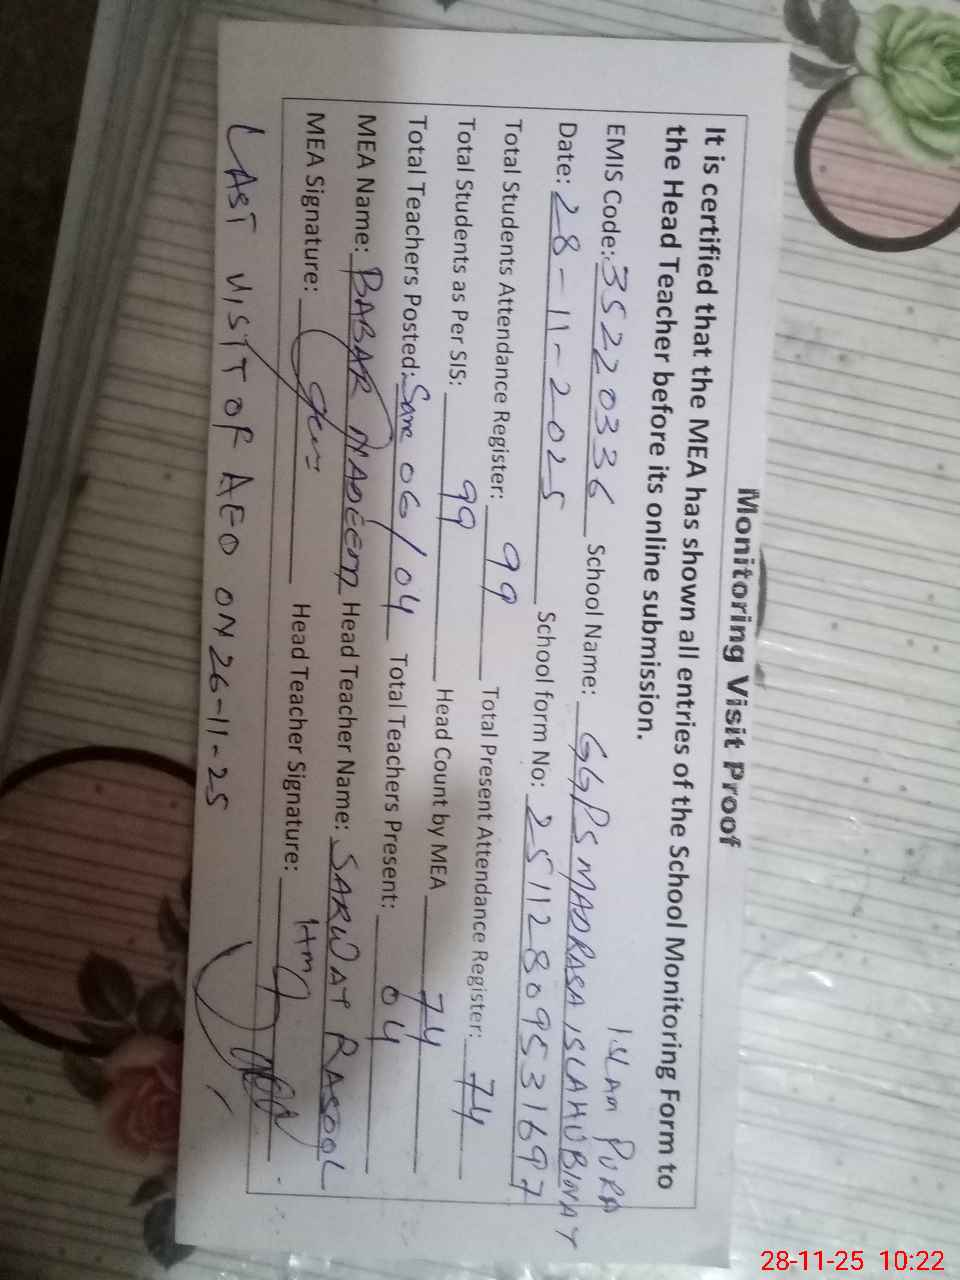 Monitoring Visit Proof
It is certified that the MEA has shown all entries of the School Monitoring Form to
the Head Teacher before its online submission.
ISLAM PURA
EMIS Code: 35220336 School Name: GGPS MADRASA ISLAHUBINAT
Date: 28-11-2025 School form No: 25112809531697
Total Students Attendance Register: 99 Total Present Attendance Register: 74
Total Students as Per SIS: 99 Head Count by MEA 74
Total Teachers Posted: 06/04 Total Teachers Present: 04
MEA Name: BABAR NADEEM Head Teacher Name: SARWAT RASOOL
MEA Signature: Head Teacher Signature:
LAST VISIT OF AEO ON 26-11-25
28-11-25 10:22